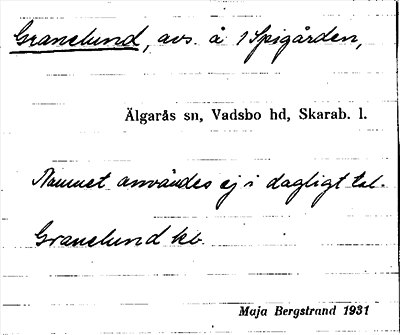 Granelund, avs. å 1 Spigården,
Älgarås sn, Vadsbo hd, Skarab. l.
Namnet användes ej i dagligt tal.
Granelund kb.
Maja Bergstrand 1931